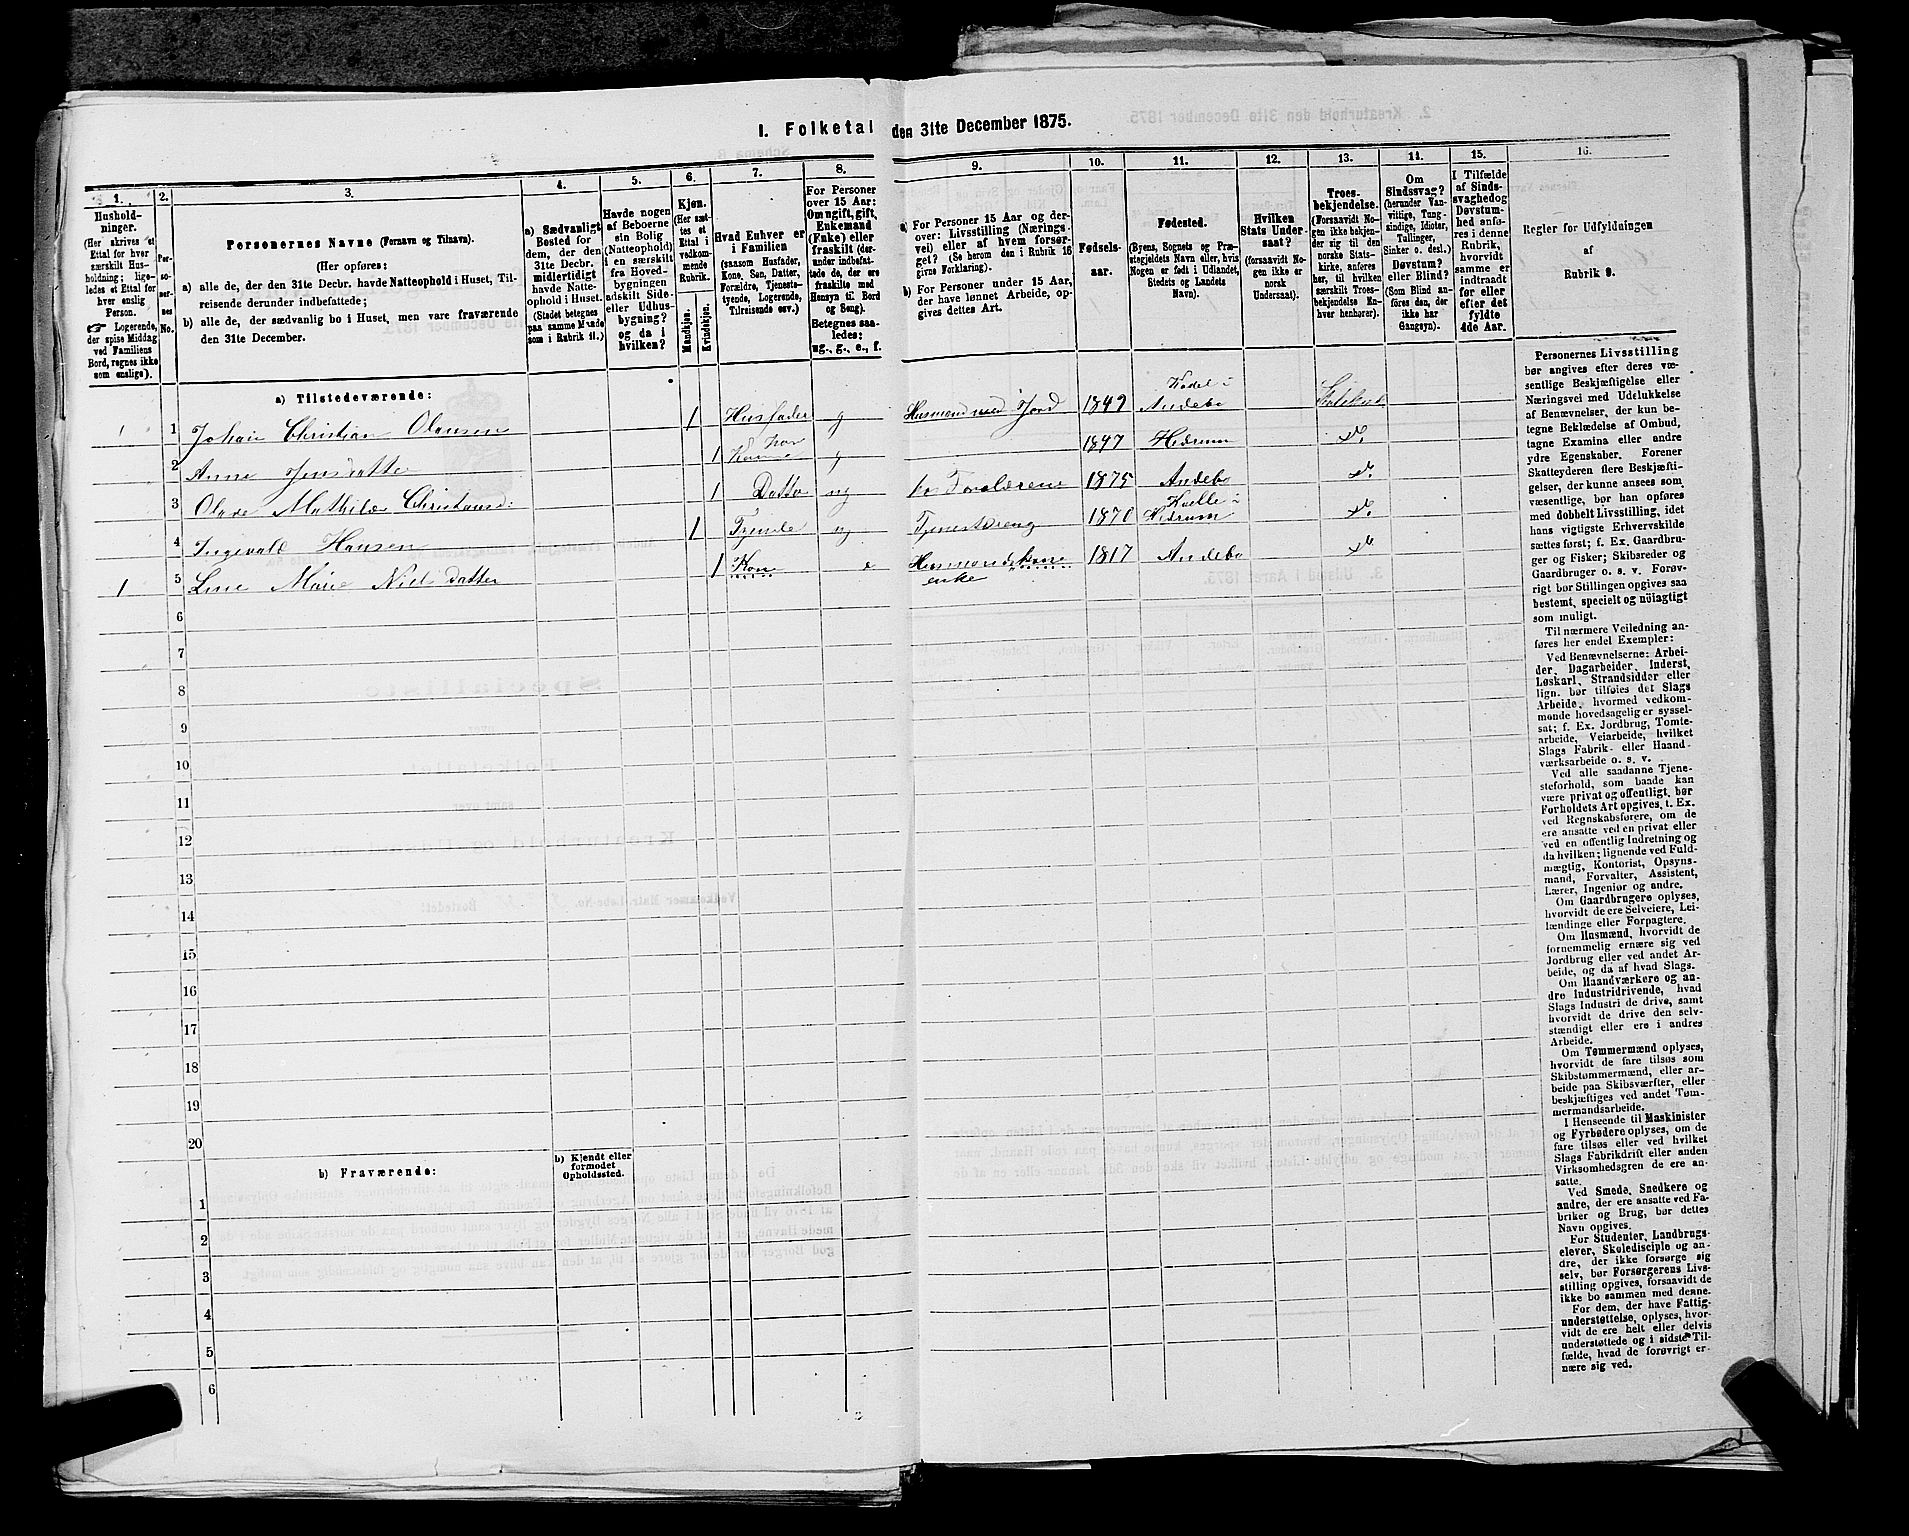 I. Folketal den 31te December 1875.
1.
2.
3.
4.
5.
6.
7.
8.
9.
10.
11.
12.
13.
14.
15.
16.
Hushold-
ninger.
(Her skrives et
Ettal for hver
særskilt Hus-
holdning; lige-
ledes et Ettal for
hver enslig
Person.
☞ Logerende,
der spise Middag
ved Familiens
Bord, regnes ikke
som enslige).
Per-
so-
ner-
nes
No.
Personernes Navne (Fornavn og Tilnavn).
(Her opføres:
a) alle de, der den 31te Decbr. havde Natteophold i Huset, Til-
reisende derunder indbefattede;
b) alle de, der sædvanlig bo i Huset, men vare fraværende
den 31te December.
a) Sædvanligt
Bosted for
dem, der den
31te Decbr.
midlertidigt
havde Natte-
ophold i Huset.
(Stedet betegnes
paa samme Maade
som i Rubrik 11.)
Havde nogen
af Beboerne
sin Bolig
(Natteophold)
i en særskilt
fra Hoved-
bygningen
adskilt Side-
eller Udhus-
bygning?
og da i
hvilken?
Kjøn.
(Her sæt-
tes et
Ettal i
vedkom-
mende
Rubrik.
Mandkjøn.
Kvindekjøn.
Hvad Enhver er
i Familien
(saasom Husfader,
Kone, Søn, Datter,
Forældre, Tjenest-
tyende, Logerende,
Tilreisende osv.)
For Personer
over 15 Aar:
Om ugift, gift,
Enkemand
(Enke) eller
fraskilt (der-
under indbefat-
tede de, der ere
fraskilte med
Hensyn til Bord
og Seng).
Betegnes saa-
ledes:
ug., g., e., f.
a) For Personer 15 Aar og der-
over: Livsstilling (Nærings-
vei) eller af hvem forsør-
get? (Se herom den i Rubrik 16
givne Forklaring).
b) For Personer under 15 Aar,
der have lønnet Arbeide, op-
gives dettes Art.
Fødsels-
aar.
Fødested.
(Byens, Sognets og Præ-
stegjeldets Navn eller, hvis
Nogen er født i Udlandet,
Stedets og Landets
Navn).
Hvilken
Stats Under-
saat?
(forsaavidt No-
gen ikke er
norsk
Undersaat).
Troes-
bekjendelse.
(Forsaavidt No-
gen ikke bekjen-
der sig til den
norske Stats-
kirke, anføres
her, til hvilken
særskilt Troes-
bekjendelse En-
hver henhører).
Om
Sindssvag?
(herunder Van-
vittige, Tung-
sindige, Idioter,
Tullinger,
Sinker o. desl.)
Døvstum?
eller Blind?
(Som Blind an-
føres den, der
ikke har
Gangsyn).
I Tilfælde
af Sinds-
svaghed og
Døvstum-
hed anfø-
res i denne
Rubrik,
hvorvidt
samme er
indtraadt
før eller
efter det
fyldte
4de Aar.
Regler for Udfyldningen
af
Rubrik 9.
a) Tilstedeværende:
1 1 Johan Christian Olausen 1 Husfader g Husmand med Jord 1849 Andebo Statskirk
2 Anne Jensdatter 1 Kone g 1847 Hedrum do
3 Olave Mathilde Christiansd: 1 Datter ug hos Forældrene 1875 Andebo do
4 Ingevald Hansen 1 Tjenende ug Tjenestdreng 1870 Hedrum do
1 5 Line Marie Nielsdatter 1 Kone e Husmandskone 1817 Andebo do
enke
6
7
8
9
10
11
12
13
14
15
16
17
18
19
20
b) Fraværende:
b) Kjendt eller
formodet
Opholdssted.
1
2
3
4
5
6
Personernes Livsstilling
bør angives efter deres væ-
sentlige Beskjæftigelse eller
Næringsvei med Udelukkelse
af Benævnelser, der kun be-
tegne Beklædelse af Ombud,
tagne Examina eller andre
ydre Egenskaber. Forener
Skatteyderen flere Beskjæfti-
gelser, der kunne ansees som
væsentlige, bør han opføres
med dobbelt Livsstilling, idet
hans vigtigste Erhvervskilde
sættes først; f. Ex. Gaardbru-
ger og Fisker; Skibsreder og
Gaardbruger o. s. v. Forøv-
rigt bør Stillingen opgives saa
bestemt, specielt og nøiagtigt
som muligt.
Til nærmere Veiledning an-
føres her endel Exempler:
Ved Benævnelserne: Arbei-
der, Dagarbeider, Inderst,
Løskarl, Strandsidder eller
lign. bør tilføies det Slags
Arbeide, hvormed vedkom-
mende hovedsagelig er syssel-
sat; f. Ex. Jordbrug, Tomte-
arbeide, Veiarbeide, hvilket
Slags Fabrik- eller Haand-
værksarbeide o. s. v.
Ved alle saadanne Tjene-
steforhold, som baade kan
være privat og offentligt, bør
Forholdets Art opgives, t. Ex.
ved Regnskabsførere, om de
ere ansatte ved en privat eller
ved en offentlig Indretning og
da hvilken; lignende ved Fuld-
mægtig, Kontorist, Opsyns-
mand, Forvalter, Assistent,
Lærer, Ingeniør og andre.
Om Gaardbrugere oplyses,
hvorvidt de ere Selveiere, Lei-
lændinge eller Forpagtere.
Om Husmænd, hvorvidt de
fornemmelig ernære sig ved
Jordbrug eller ved andet Ar-
beide, og da af hvad Slags.
Om Haandværkere og an-
dre Industridrivende, hvad
Slags Industri de drive, samt
hvorvidt de drive den selv-
stændigt eller ere i andres
Arbeide.
Om Tømmermænd oplyses,
hvorvidt de fare tilsøs som
Skibstømmermænd, eller ar-
beide paa Skibsværfter, eller
beskjæftiges ved andet Tøm-
mermandsarbeide.
I Henseende til Maskinister
og Fyrbødere oplyses, om de
fare tilsøs eller ved hvilket
Slags Fabrikdrift eller anden
Virksomhedsgren de ere an-
satte.
Ved Smede, Snedkere og
andre, der ere ansatte ved Fa-
briker og Brug, bør dettes
Navn opgives.
For Studenter, Landbrugs-
elever, Skoledisciple og an-
dre, der ikke forsørge sig
selv, bør Forsørgerens Livs-
stilling opgives, forsaavidt de
ikke bo sammen med denne.
For dem, der have Fattig-
understøttelse, oplyses, hvor-
vidt de ere helt eller delvis
understøttede og i sidste Til-
fælde, hvad de forøvrigt er-
nære sig ved.